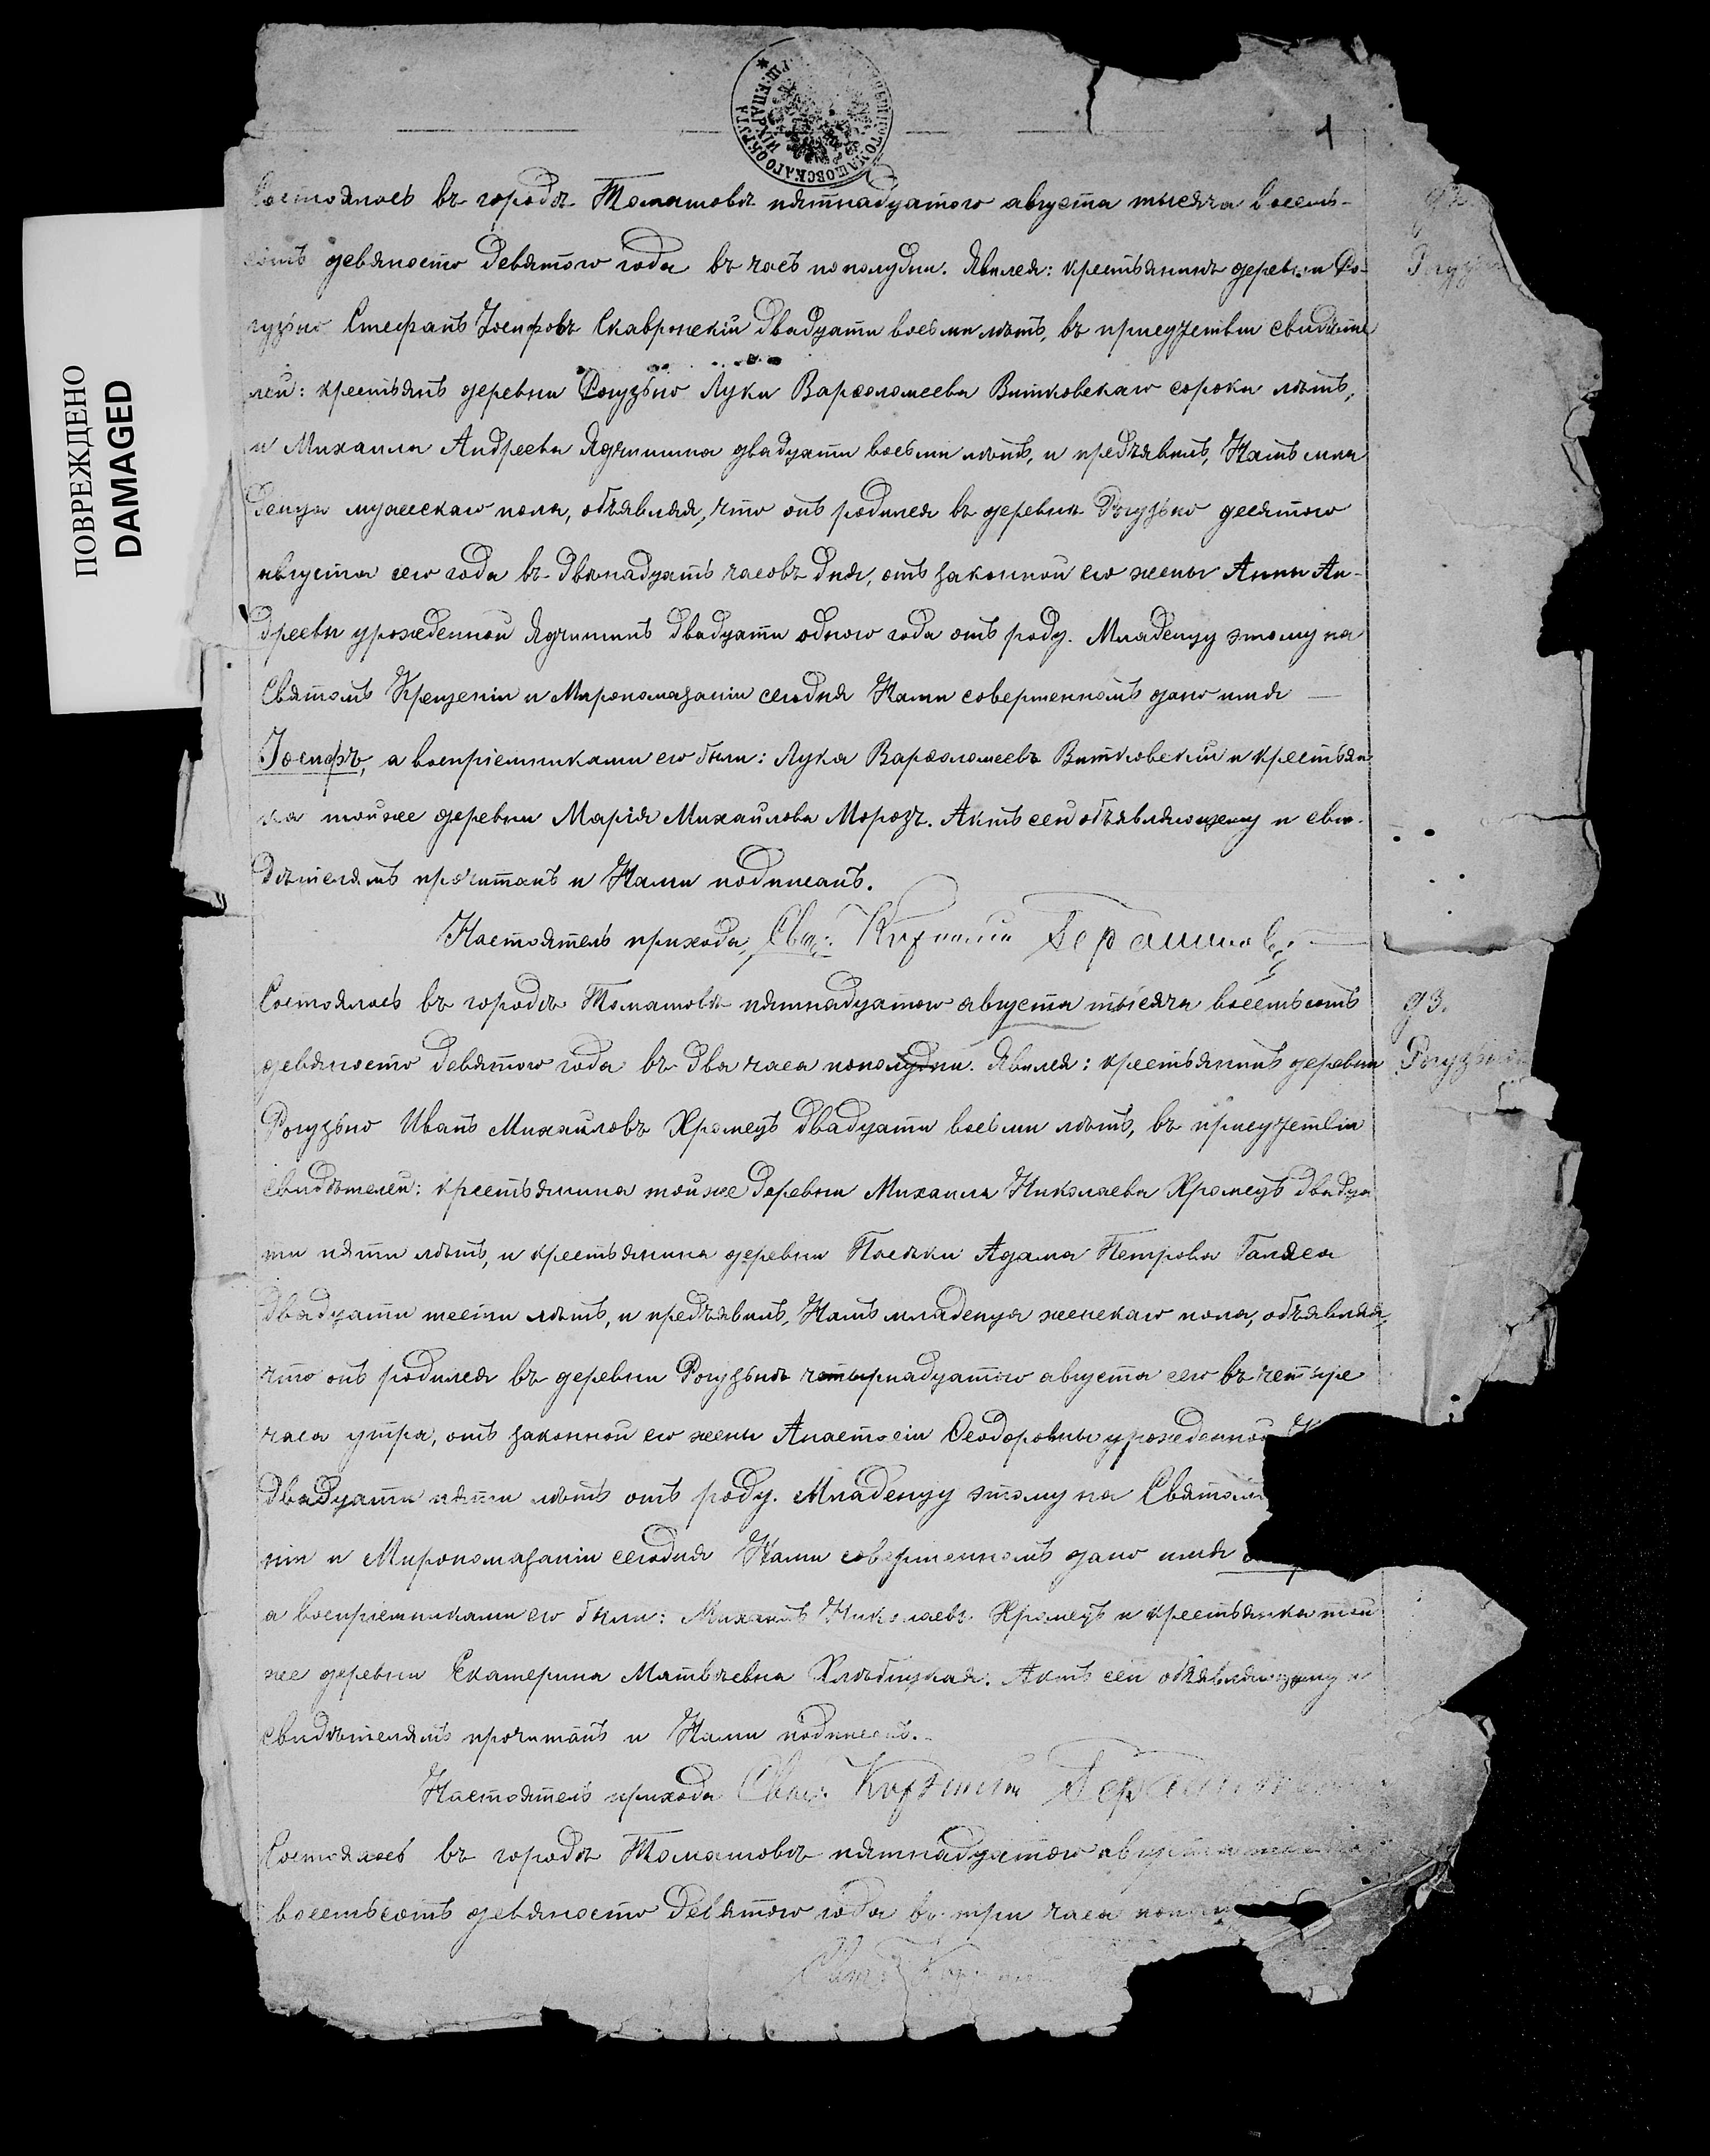 ПОВРЕЖДЕНО
DAMAGED
1
Состоялось въ городѣ Томашовѣ пятнадцатого августа тысяча восемь-
сотъ девяносто девятого года въ часъ пополудни. Явился: крестьянинъ деревни Ро-
гузьно Стефанъ Іосифовъ Скавронскій двадцати восьми лѣтъ, въ присутствіи свидѣте
лей: крестьянъ деревни Рогузьно Луки Варѳоломеева Витковскаго сорока лѣтъ,
и Михаила Андреева Ядчишина двадцати восьми лѣтъ, и предъявилъ Намъ мла
денца мужескаго пола, объявляя, что онъ родился въ деревнѣ Рогузьно десятого
августа сего года въ двѣнадцать часовъ дня, отъ законной его жены Анны Ан-
дреевы урожденной Ядчишинъ двадцати одного года отъ роду. Младенцу этому на
Святомъ Крещеніи и Миропомазаніи сегодня Нами совершенномъ дано имя
Іосифъ, а воспріемниками его были: Лука Варѳоломеевъ Витковскій и крестьян
ка той же деревни Марія Михайлова Морозъ. Актъ сей объявляющему и сви-
дѣтелямъ прочитанъ и Нами подписанъ.
Настоятель прихода, Свящ:
Состоялось въ городѣ Томашовѣ пятнадцатого августа тысяча восемьсотъ
девяносто девятого года въ два часа пополудни. Явился: крестьянинъ деревни
93.
Рогузьно
Рогузьно Иванъ Михайловъ Кромецъ двадцати восьми лѣтъ, въ присутствіи
свидѣтелей: крестьянина той же деревни Михаила Николаева Кромецъ двадца
ти пяти лѣтъ, и крестьянина деревни Посѣки Адама Петрова Галяса
двадцати шести лѣтъ, и предъявилъ Намъ младенца женскаго пола, объявляя,
что онъ родился въ деревни Рогузьнѣ четырнадцатого августа сего въ четыре
часа утра, отъ законной его жены Анастасіи Ѳеодоровны урожденной
двадцати пяти лѣтъ отъ роду. Младенцу этому на Святомъ
ніи и Миропомазаніи сегодня Нами совершенномъ дано имя
а воспріемниками его были: Михаилъ Николаевъ Кромецъ и крестьянка той
же деревни Екатерина Матвѣевна Хлѣбицкая. Актъ сей объявляющему и
свидѣтелямъ прочитанъ и Нами подписанъ.
Настоятель прихода Свящ:
Состоялось въ городѣ Томашовѣ пятнадцатого августа тысяча
восемьсотъ девяносто девятого года въ три часа